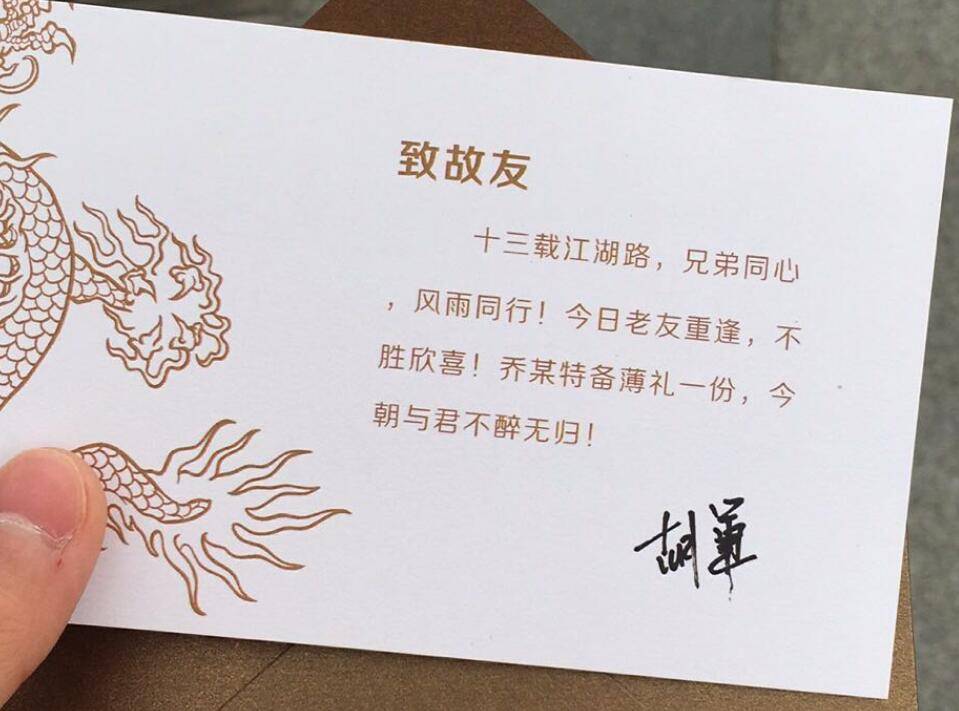 致故友
十三载江湖路，兄弟同心
，风雨同行！今日老友重逢，不
胜欣喜！乔某特备薄礼一份，今
朝与君不醉无归！
胡军